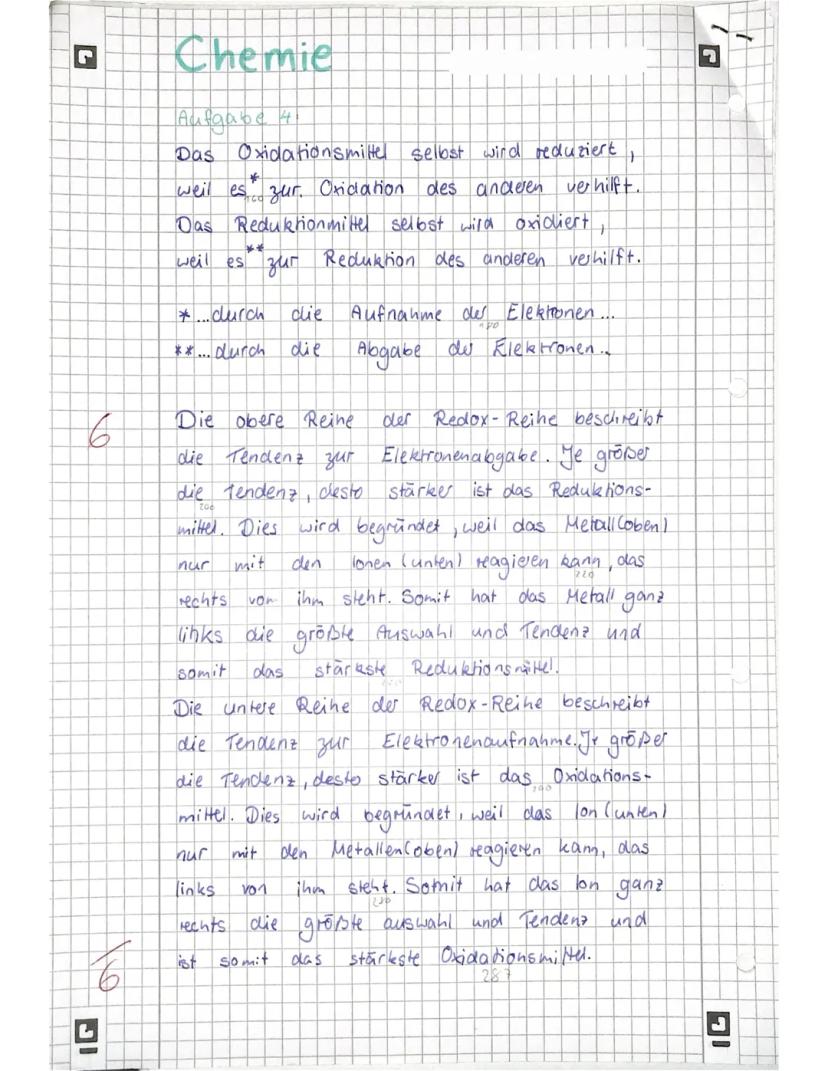 Chemie
Aufgabe 4
Das Oxidationsmittel selbst wird reduziert,
weil es* zur Oxidation des anderen verhilft.
160
Das Reduktionmittel selbst wird oxidiert,
weil es** zur Reduktion des anderen verhilft.
*...durch die Aufnahme der Elektronen...
180
**...durch die Abgabe der Elektronen...
6
Die obere Reihe der Redox-Reihe beschreibt
die Tendenz zur Elektronenabgabe. Je größer
die Tendenz, desto stärker ist das Reduktions-
200
mittel. Dies wird begründet, weil das Metall(oben)
nur mit den Ionen (unten) reagieren kann, das
220
rechts von ihm steht. Somit hat das Metall ganz
links die größte Auswahl und Tendenz und
somit das stärkste Reduktionsmittel.
Die untere Reihe der Redox-Reihe beschreibt
die Tendenz zur Elektronenaufnahme. Je größer
die Tendenz, desto stärker ist das Oxidations-
mittel. Dies wird begründet, weil das Ion (unten)
nur mit den Metallen(oben) reagieren kann, das
links von ihm steht. Somit hat das Ion ganz
rechts die größte auswahl und Tendenz und
ist somit das stärkste Oxidationsmittel.
6
287